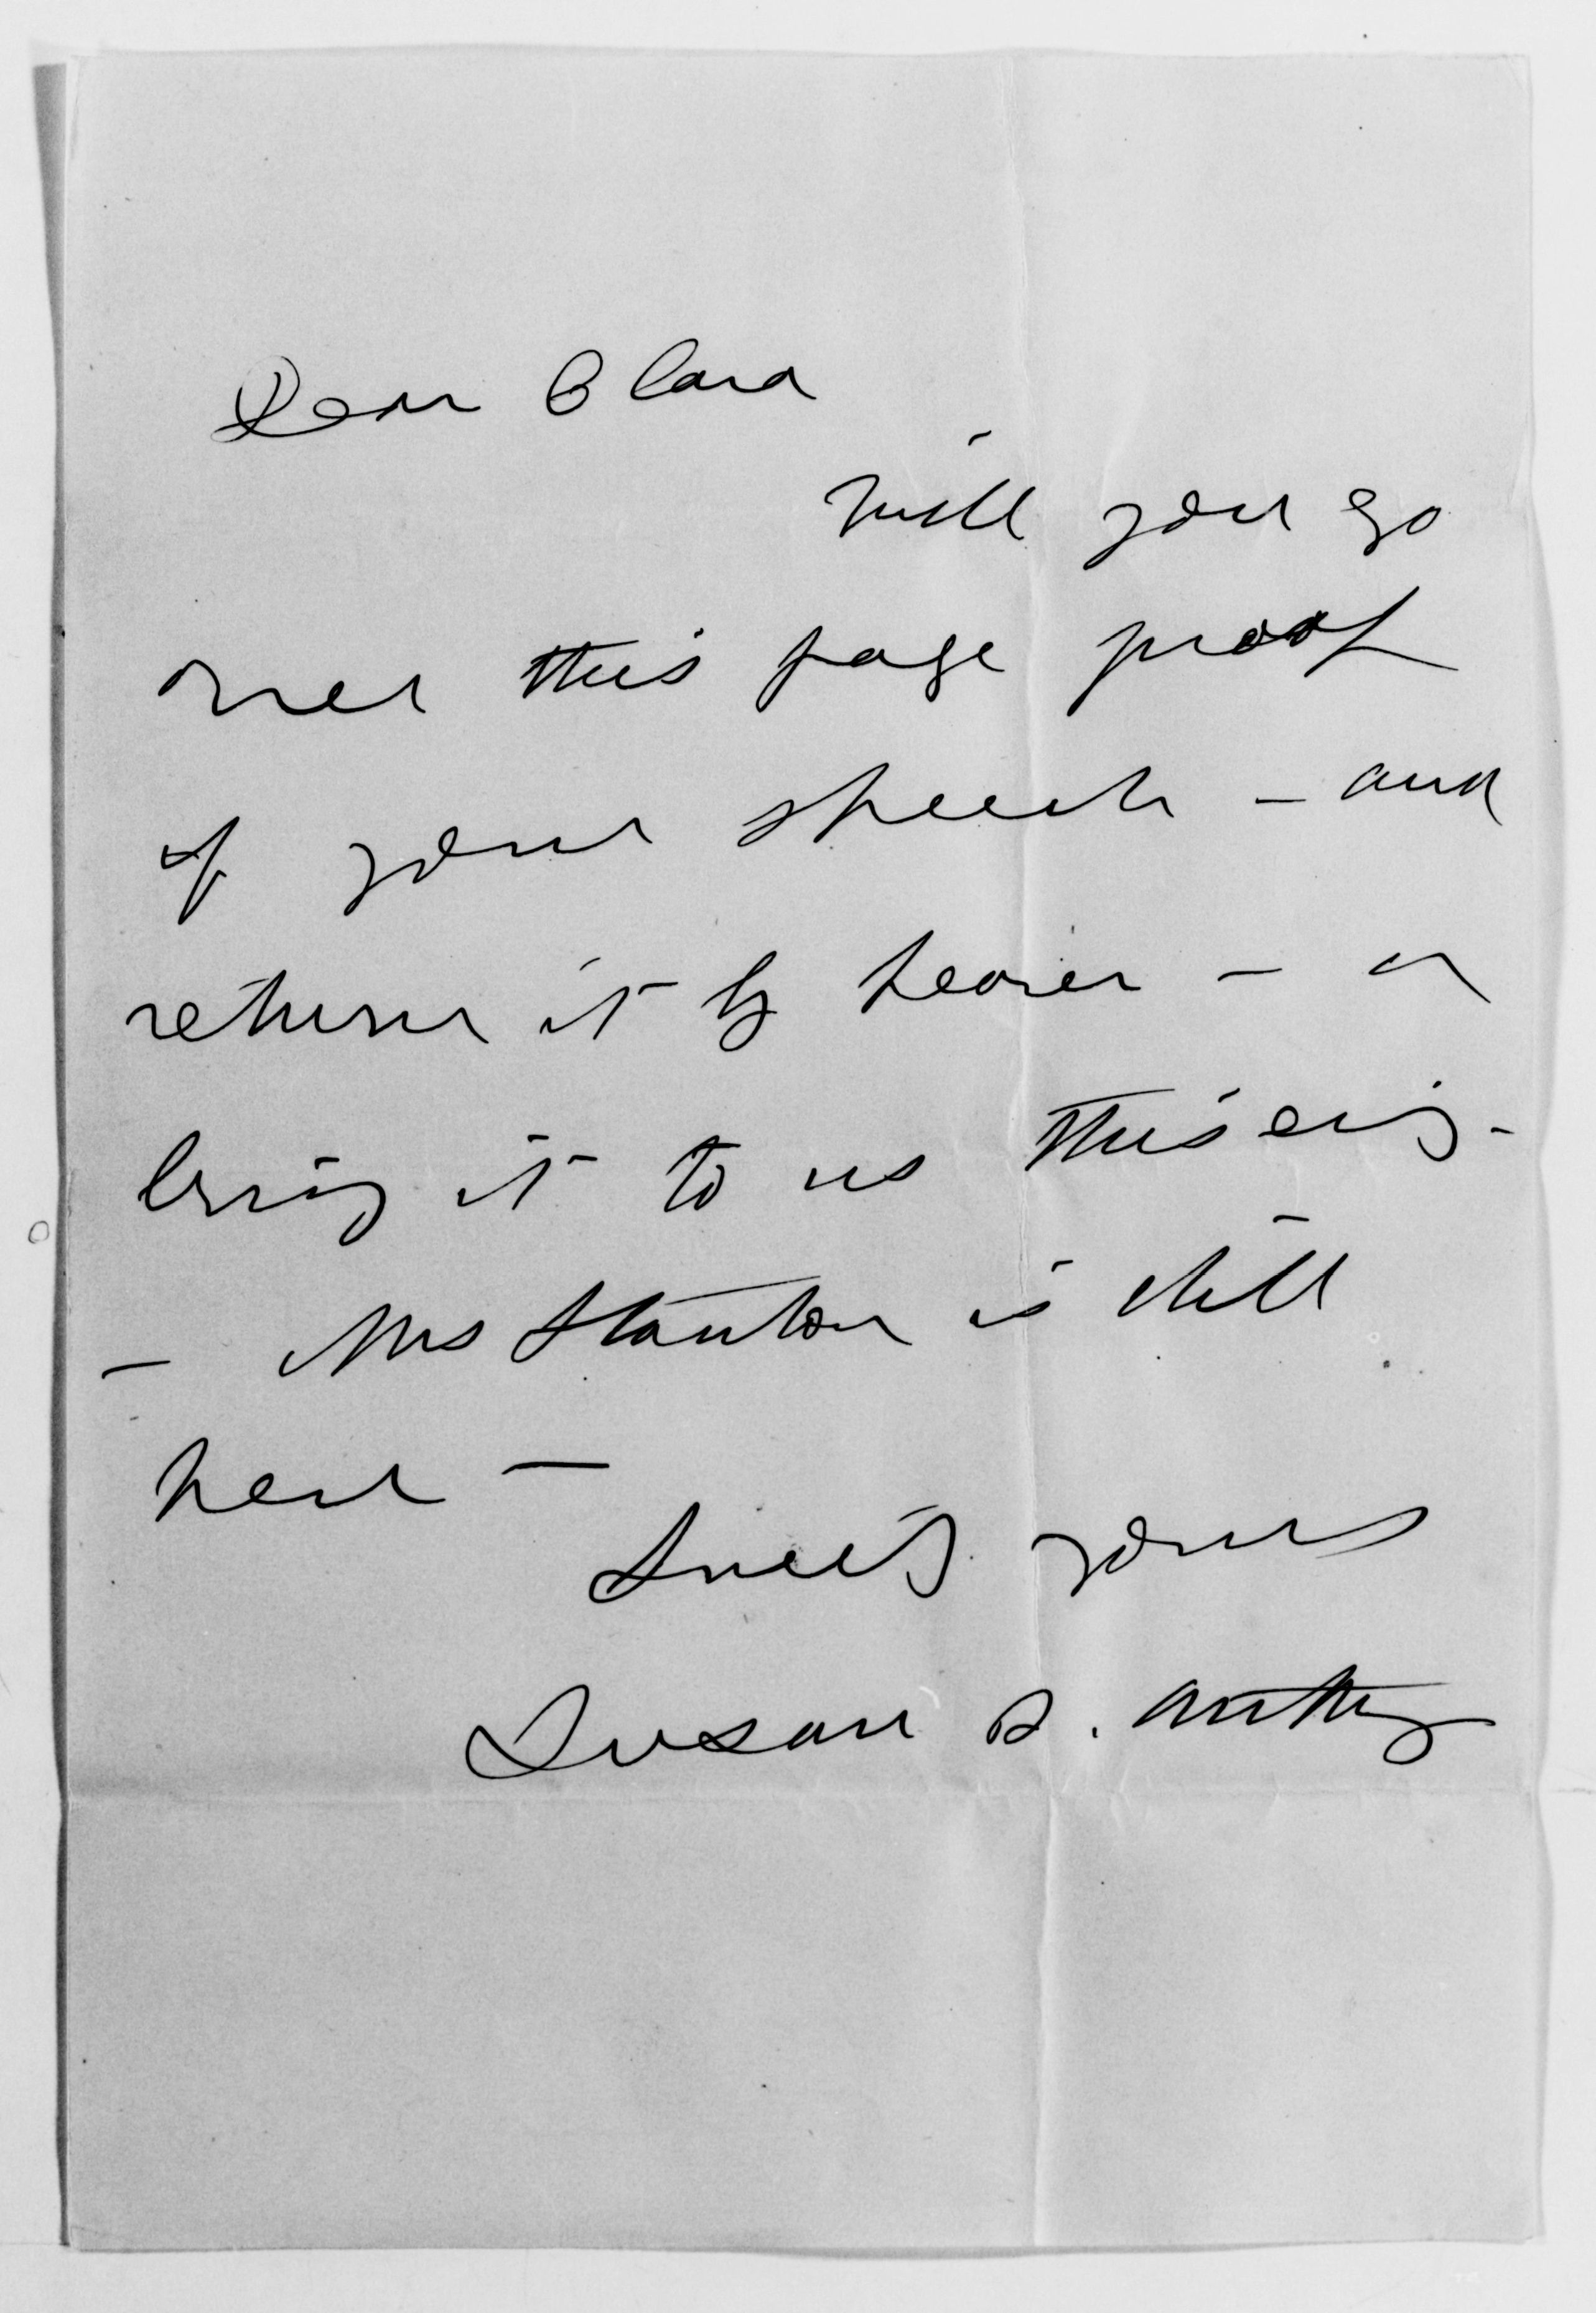 Dear Clara
Will you go
over this page proof
of your speech – and
return it by bearer – or
bring it to us this evig –
– Mrs Stanton is still
here –
Sincely yours
Susan B. Anthony